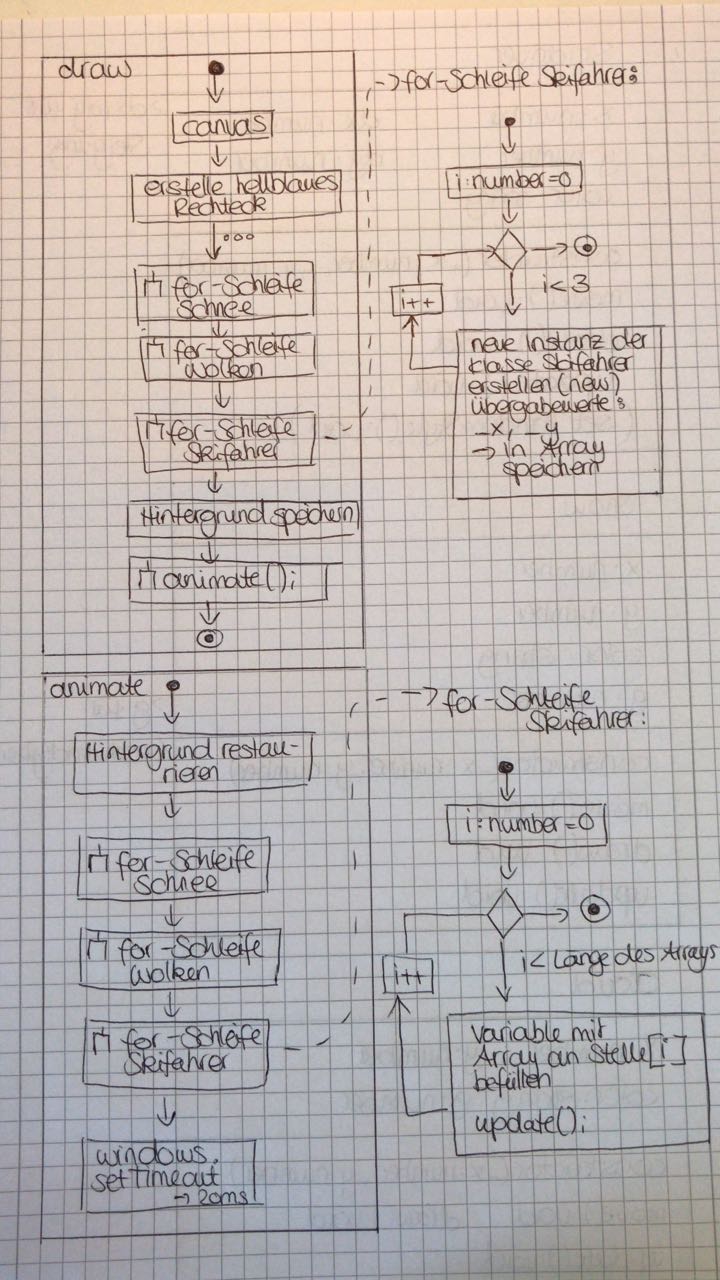 draw
canvas
erstelle hellblaues
Rechteck
...
for-Schleife
Schnee
for-Schleife
Wolken
for-Schleife
Skifahrer
Hintergrund speichern
animate();
-> for-Schleife Skifahrer:
i:number=0
i<3
i++
neue Instanz der
Klasse Skifahrer
erstellen (new)
Übergabewerte:
_x, _y
-> in Array
speichern
animate
Hintergrund restau-
rieren
for-Schleife
Schnee
for-Schleife
Wolken
for-Schleife
Skifahrer
windows.
setTimeout
-> 20ms
-> for-Schleife
Skifahrer:
i:number=0
i< Länge des Arrays
i++
Variable mit
Array an Stelle [i]
befüllen
update();